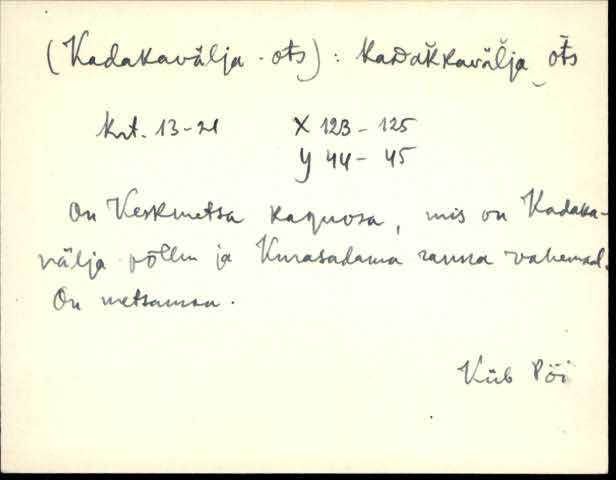 (Kadakavälja-ots): kaᴅak̆kaväl̆ja‿ot̆s
krt. 13-21 X 123-125
y 44-45
On Keskmetsa kaguosa, mis on Kadaka-
välja põllu ja Kurasadama ranna vahemaal.
On metsamaa.
Küb Pöi